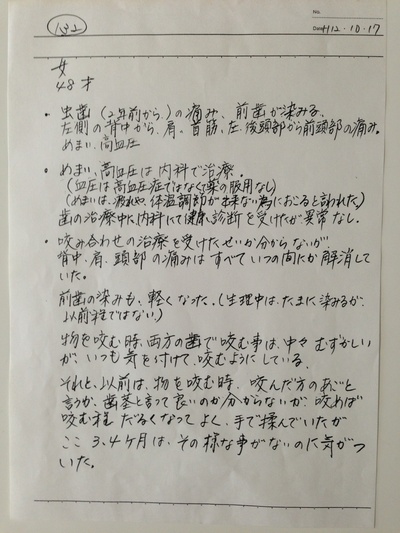 132
No.
Date H12・10・17
女
48才
・虫歯（2年前から）の痛み、前歯が染みる、
左側の背中から、肩、首筋、左、後頭部から前頭部の痛み。
めまい、高血圧
・めまい、高血圧は内科で治療。
（血圧は高血圧症ではなくて薬の服用なし）
（めまいは、疲れや、体温調節が出来ない為におこると言われた）
歯の治療中に内科にて健康診断を受けたが異常なし.
・咬み合わせの治療を受けたせいか分からないが、
背中、肩、頭部の痛みはすべていつの間にか解消して
いた。
前歯の染みも、軽くなった.（生理中は、たまに染みるが、
以前程ではない）
物を咬む時、両方の歯で咬む事は、中々むずかしい
が、いつも気を付けて、咬むようにしている.
それと、以前は、物を咬む時、咬んだ方のあごと
言うか、歯茎と言って良いのか分からないが、咬めば
咬む程だるくなってよく、手で揉んでいたが
ここ3、4ヶ月は、その様な事がないのに気がつ
いた。